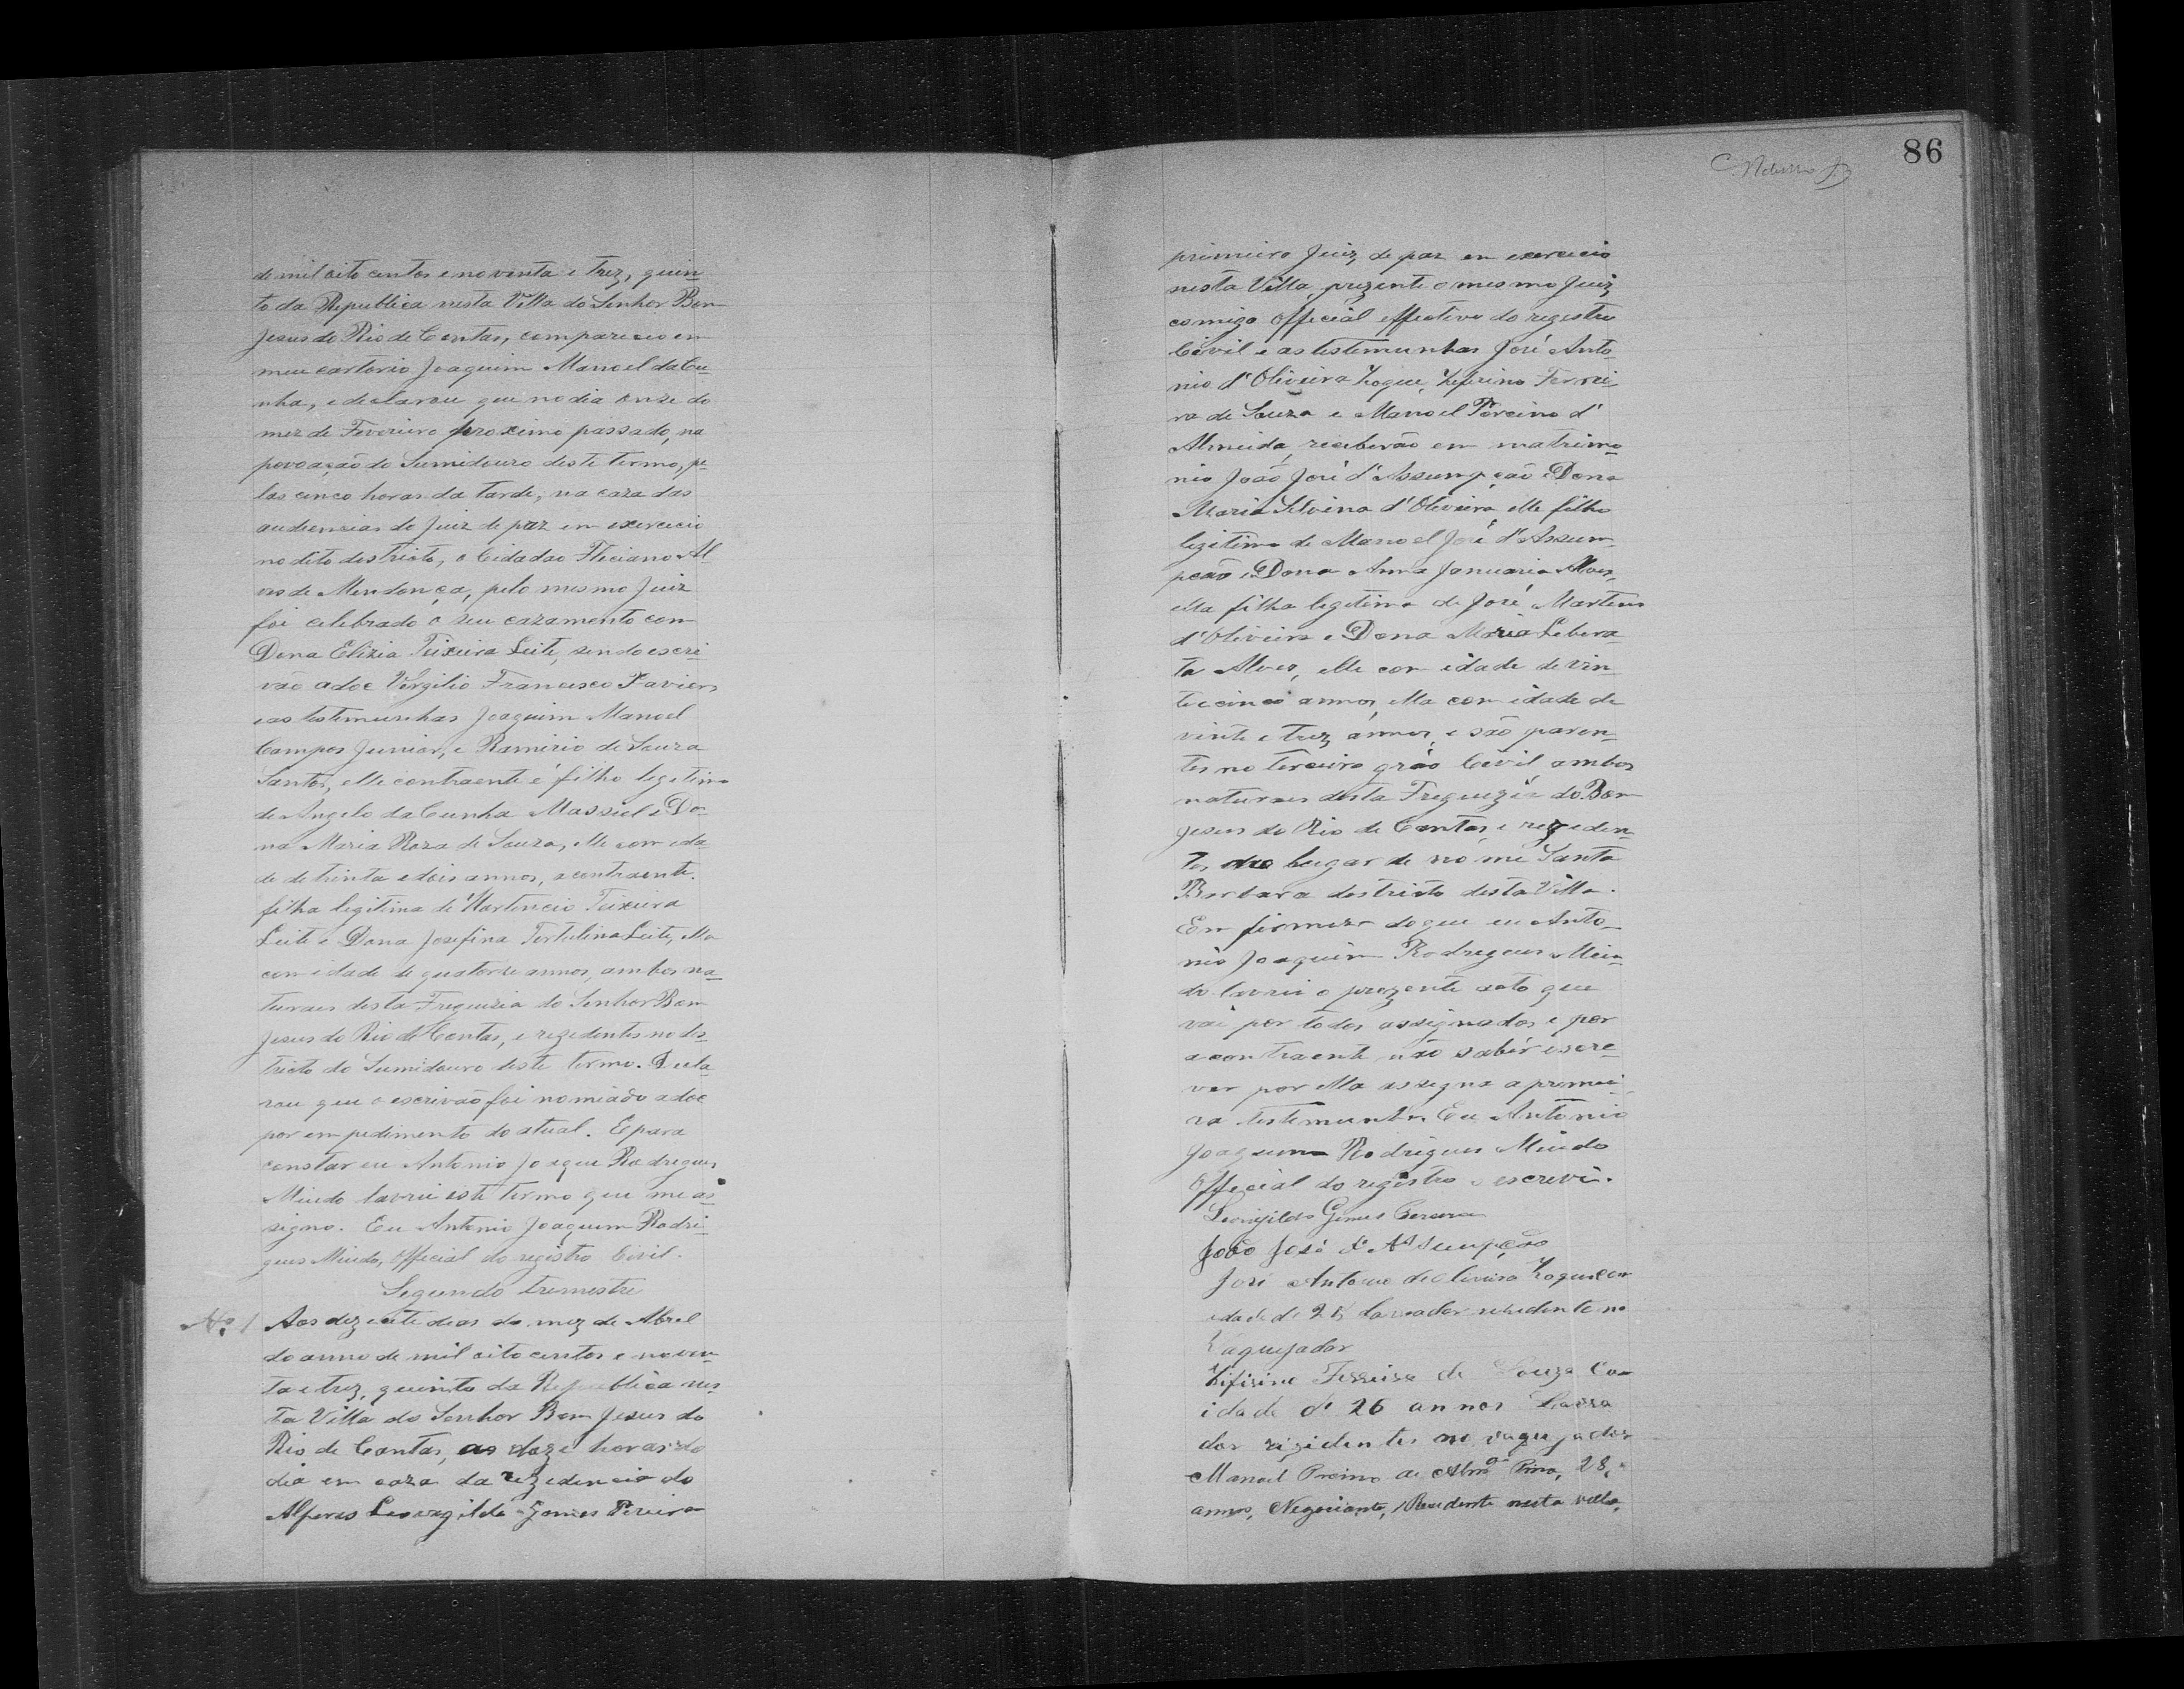 de mil oito centos e noventa e trez, quin
to da Republica nesta Villa do Senhor Bom
Jesus do Rio de Contas, compareceo em
meu cartorio Joaquim Manoel da Cu
nha, e declarou que no dia onze do
mez de Fevereiro proximo passado, na
povoação do Sumidouro deste termo, pe
las cinco horas da tarde, na caza das
audiencias do Juiz de paz em exercicio
no dito destricto, o Cidadão Feliciano Al
ves de Mendonça, pelo mesmo Juiz
foi celebrado o seu cazamento com
Dona Elizia Teixeira Leite, sendo escri
vão adoc Virgilio Francisco Xavier,
e as testemunhas Joaquim Manoel
Campos Junior, e Ramirio de Souza
Santos, elle contraente é filho legitimo
de Angelo da Cunha Massiel e Do
na Maria Roza de Souza, elle com ida
de de trinta e dois annos, a contraente
filha legitima de Hortencio Teixeira
Leite e Dona Josefina Tertulina Leite, ella
com idade de quatorze annos, ambos na
turaes desta Freguezia do Senhor Bom
Jesus do Rio de Contas, e rezedentes no des
tricto do Sumidouro deste termo. Decla
rou que o escrivão foi nomiado adoc
por empedimento do atual. E para
constar eu Antonio Joaque Rodrigues
Miudo lavrei este termo que me as
signo. Eu Antonio Joaquim Rodri
gues Miudo, Official do registro Civil.
Segundo tremestre
Nº 1
Aos dezesete dias do mez de Abril
do anno de mil oito centos e noven
ta e trez, quinto da Republica nes
ta Villa do Senhor Bom Jesus do
Rio de Contas, as doze horas do
dia em caza da rezedencia do
Alferes Leovegildo Gomes Pereira
86
primeiro Juiz de paz em exercicio
nesta Villa, prezente o mesmo Juiz
comigo Official effectivo do registro
Civil e as testemunhas José Anto
nio d'Oliveira Roque, Zeferino Ferrei
ra de Souza e Manoel Porcino d'
Almeida, receberão em matrimo
nio João José d'Assumpção e Dona
Maria Silvina d'Oliveira, elle filho
legitimo de Manoel José d'Assum
pção e Dona Anna Januaria Alves,
ella filha legitima de José Martins
d'Oliveira e Dona Maria Libera
ta Alves, elle com idade de vin
te e cinco annos, ella com idade de
vinte e trez annos, e são paren
tes no terceiro gráo Civil ambos
naturaes desta Freguezia do Bom
Jesus do Rio de Contas, e rezeden
tes no lugar de nome Santa
Barbara destricto desta Villa.
Em firmeza do que eu Anto
nio Joaquim Rodrigues Miu
do lavrei o prezente acto que
vai por todos assignados e por
a contraente não saber escre
ver por ella assigna a primei
ra testemunha. Eu Antonio
Joaquim Rodrigues Miudo
Official do registro o escrevi.
Leovigildo Gomes
João José d'Assumpção
José Antonio de Oliveira Roque com
edade de 25 lavrador residente no
Vaquejador
Zifirino Ferreira de Souza Com
idade de 26 annos Lavra
dor rizidentes no vaquejador
Manoel Porcino de Almda 28
annos, Negociante, Residente nesta villa.